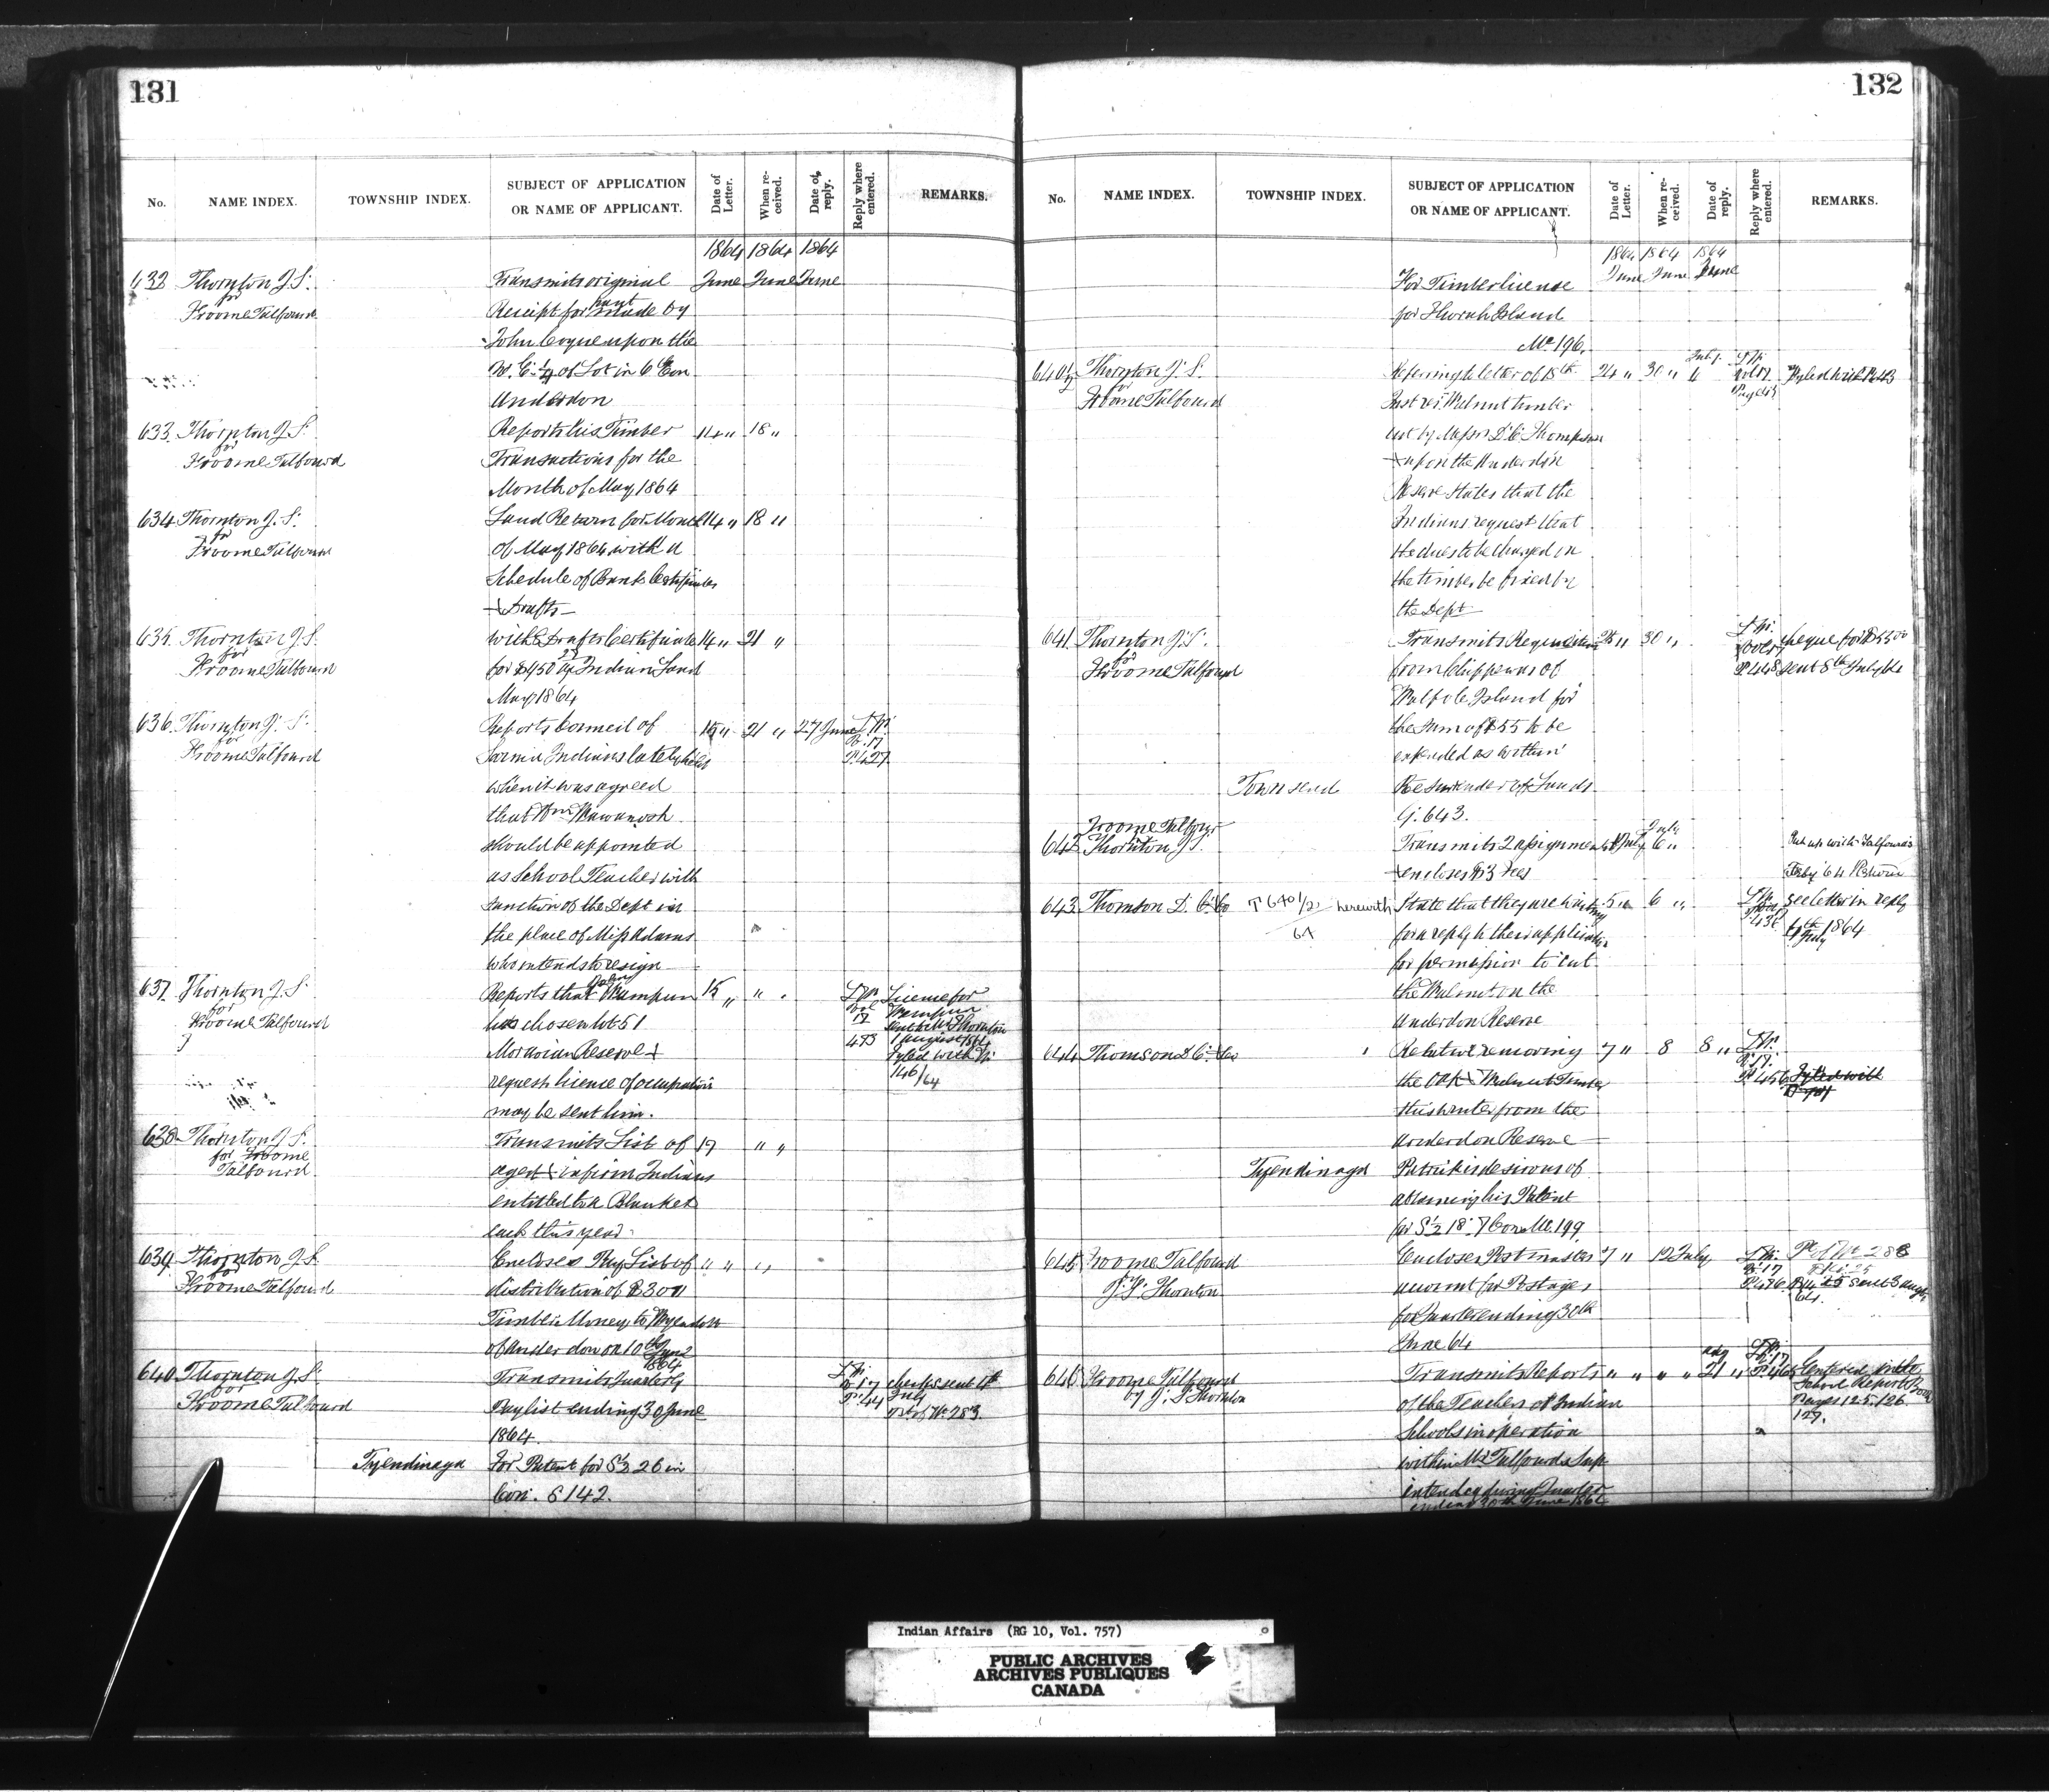 131
No. NAME INDEX. TOWNSHIP INDEX. SUBJECT OF APPLICATION OR NAME OF APPLICANT. Date of Letter. When re-ceived. Date of reply. Reply where entered. REMARKS.
1864 1864 1864
632 Thornton J. S. Transmits original June June June
for
Froome Talfourd Receipt for paymt made by
John upon the
N. E. 1/4 of Lot in 6 Con
Anderdon
633 Thornton J. S. Reports his Timber 14 " 18 "
for
Froome Talfourd Transactions for the
Month of May 1864
634 Thornton J. S. Land Return for Month 14 " 18 "
for
Froome Talfourd of May 1864 with a
Schedule of Bank Certificates
+ Drafts
635 Thornton J. S. with Drafts Certificate 14 " 21 "
for
Froome Talfourd for $450 Indian Land
May 1864
636 Thornton J. S. Reports Council of 15 " 21 " 27 June L. Bk.
for
Froome Talfourd Sarnia Indians lately held V. 17
P. 427
when it was agreed
that Wm Wawanosh
should be appointed
as School Teacher with
sanction of the Dept in
the place of Miss Adams
who intends to resign
637 Thornton J. S. Reports that John Wampum 15 " " " License for
for
Froome Talfourd has chosen lot 51 Vol 17 473 Wampum sent to Mr Thornton
Moravian Reserve + 1 August 1864
request license of occupation Fyled with 146/64
may be sent him.
638 Thornton J. S. Transmits List of 17 " "
for Froome
Talfourd aged + infirm Indians
entitled to a Blanket
each this year
639 Thornton J. S. Encloses Pay List of " " " "
for
Froome Talfourd distribution of $300
Timber Money to Wyandotts
of Anderdon on 10th June
1864
640 Thornton J. S. Transmits Quarterly V. 17 cheques sent 4th
for
Froome Talfourd Paylist ending 30 June P. 44 July
1864 No. 283.
Tyendinaga For Patent for S 1/2 26 in
Con. S 142.
132
No. NAME INDEX. TOWNSHIP INDEX. SUBJECT OF APPLICATION OR NAME OF APPLICANT. Date of Letter. When re-ceived. Date of reply. Reply where entered. REMARKS.
1864 1864 1864
For Timber license June June June
for Thorah Island
Mc 196.
640 1/2 Thornton J. S. Referring to letter of 18th 24 " 30 " July 4 Vol 17
for
Froome Talfourd Inst res. Walnut timber
cut by Messrs D. C. Thompson
+ upon the Anderdon
Reserve states that the
Indians request that
the dues to be charged on
the timber be fixed by
the Dept
641 Thornton J. S. Transmits Requisition 25 " 30 " Cheque for $55 00
for
Froome Talfourd from Chippewas of P. 448 sent 8th July 64
Walpole Island for
the sum of $55 to be
expended as within
Townsend Re Surrender of Lands
G. 643.
Froome Talfourd
642 Thornton J. S. Transmits 2 assignments July July 6 " Put up with Talfourd's
+ encloses $3 Fees Feby 64 Return
643 Thomson D. C. & Co T 640 1/2 / 64 herewith State that they are waiting 5 " 6 " see letter in reply
for a reply to their application 6th July 1864
for permission to cut
the Walnut on the
Anderdon Reserve
644 Thomson D. C. & Co Relative removing 7 " 8 8 "
the Oak + Walnut Timber V. 17 P. 456 Fyled with
this winter from the
Anderdon Reserve
Tyendinaga Patrick is desirous of
obtaining his Patent
for S 1/2 18. 7 Con Mc 199
645 Froome Talfourd Encloses Postmaster 7 " 12 July No 288
J. S. Thornton account for Postage V. 17 P. 476
for Quarter ending 30th
June 64
646 Froome Talfourd Transmits Reports " " " " Aug 21 " Entered into
by J. S. Thornton of the Teachers of Indian School Report Book
Schools in operation Pages 125. 126
within Mr Talfourds Sup 127.
intendcy during Quarter
ending 30th June 1864
Indian Affairs (RG 10, Vol. 757)
PUBLIC ARCHIVES
ARCHIVES PUBLIQUES
CANADA